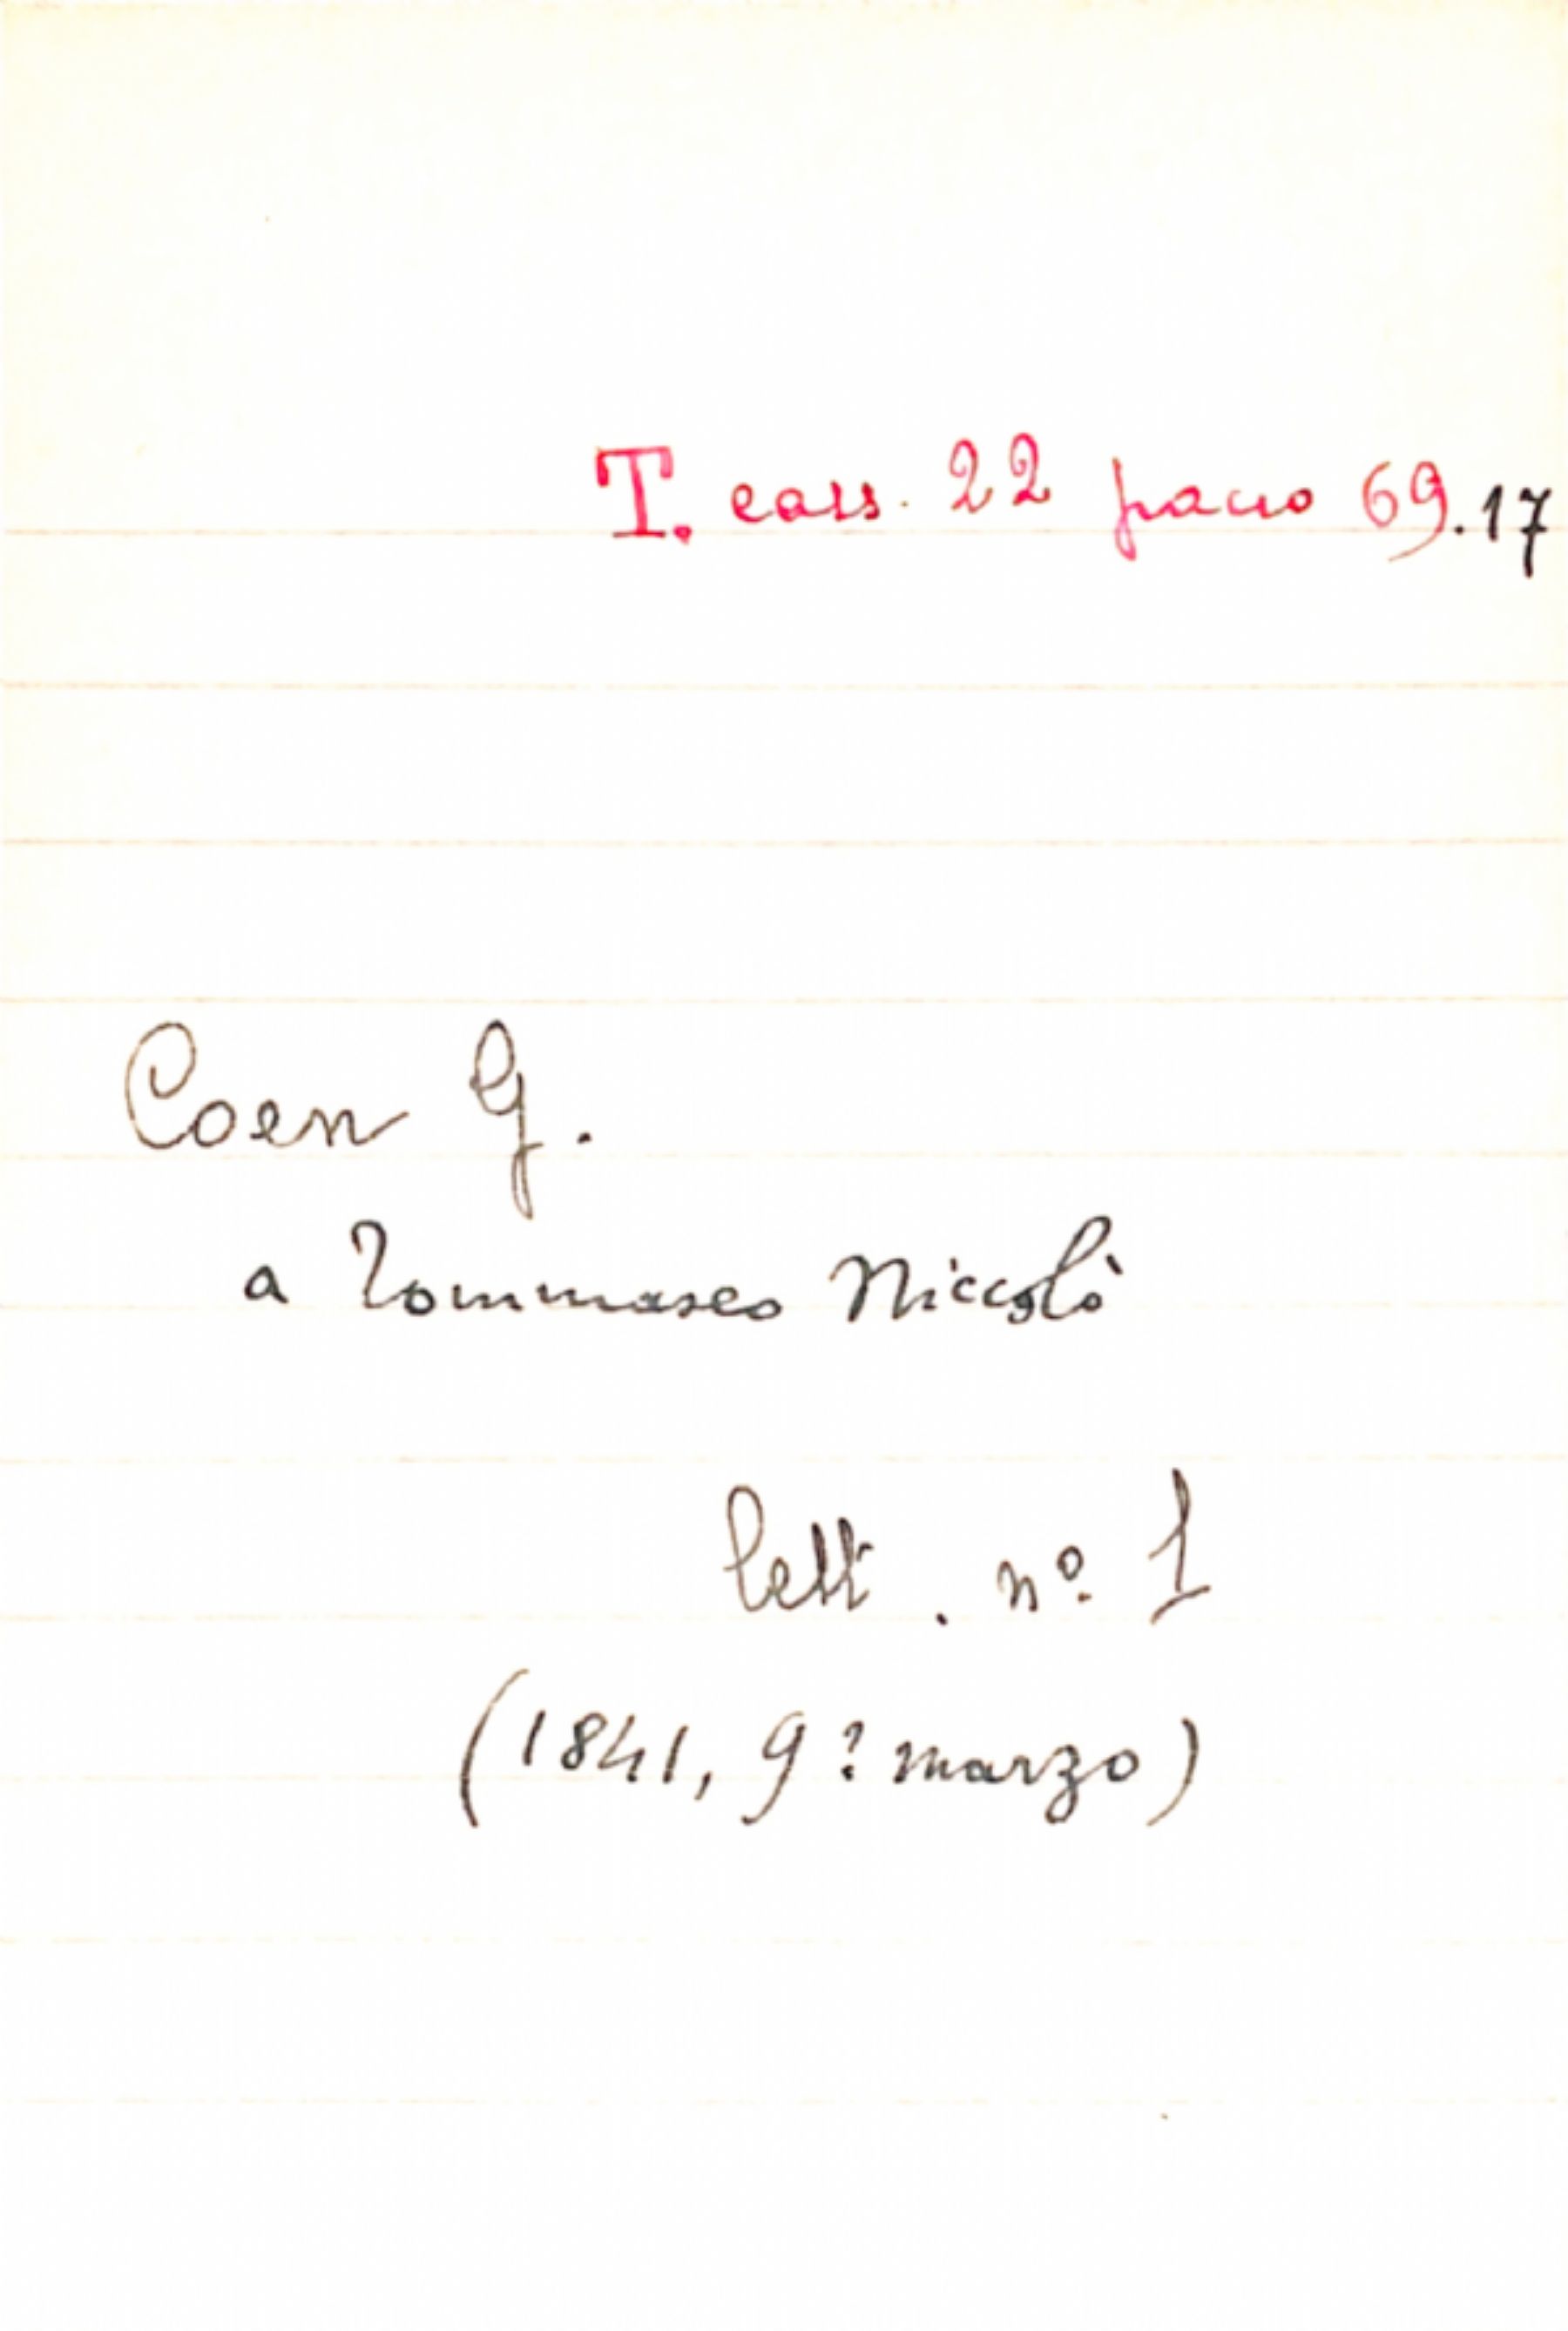 T. cass. 22 pacco 69.17
Coen G.
a Tommaseo Niccolò
lett. nº 1
(1841, 9? marzo)